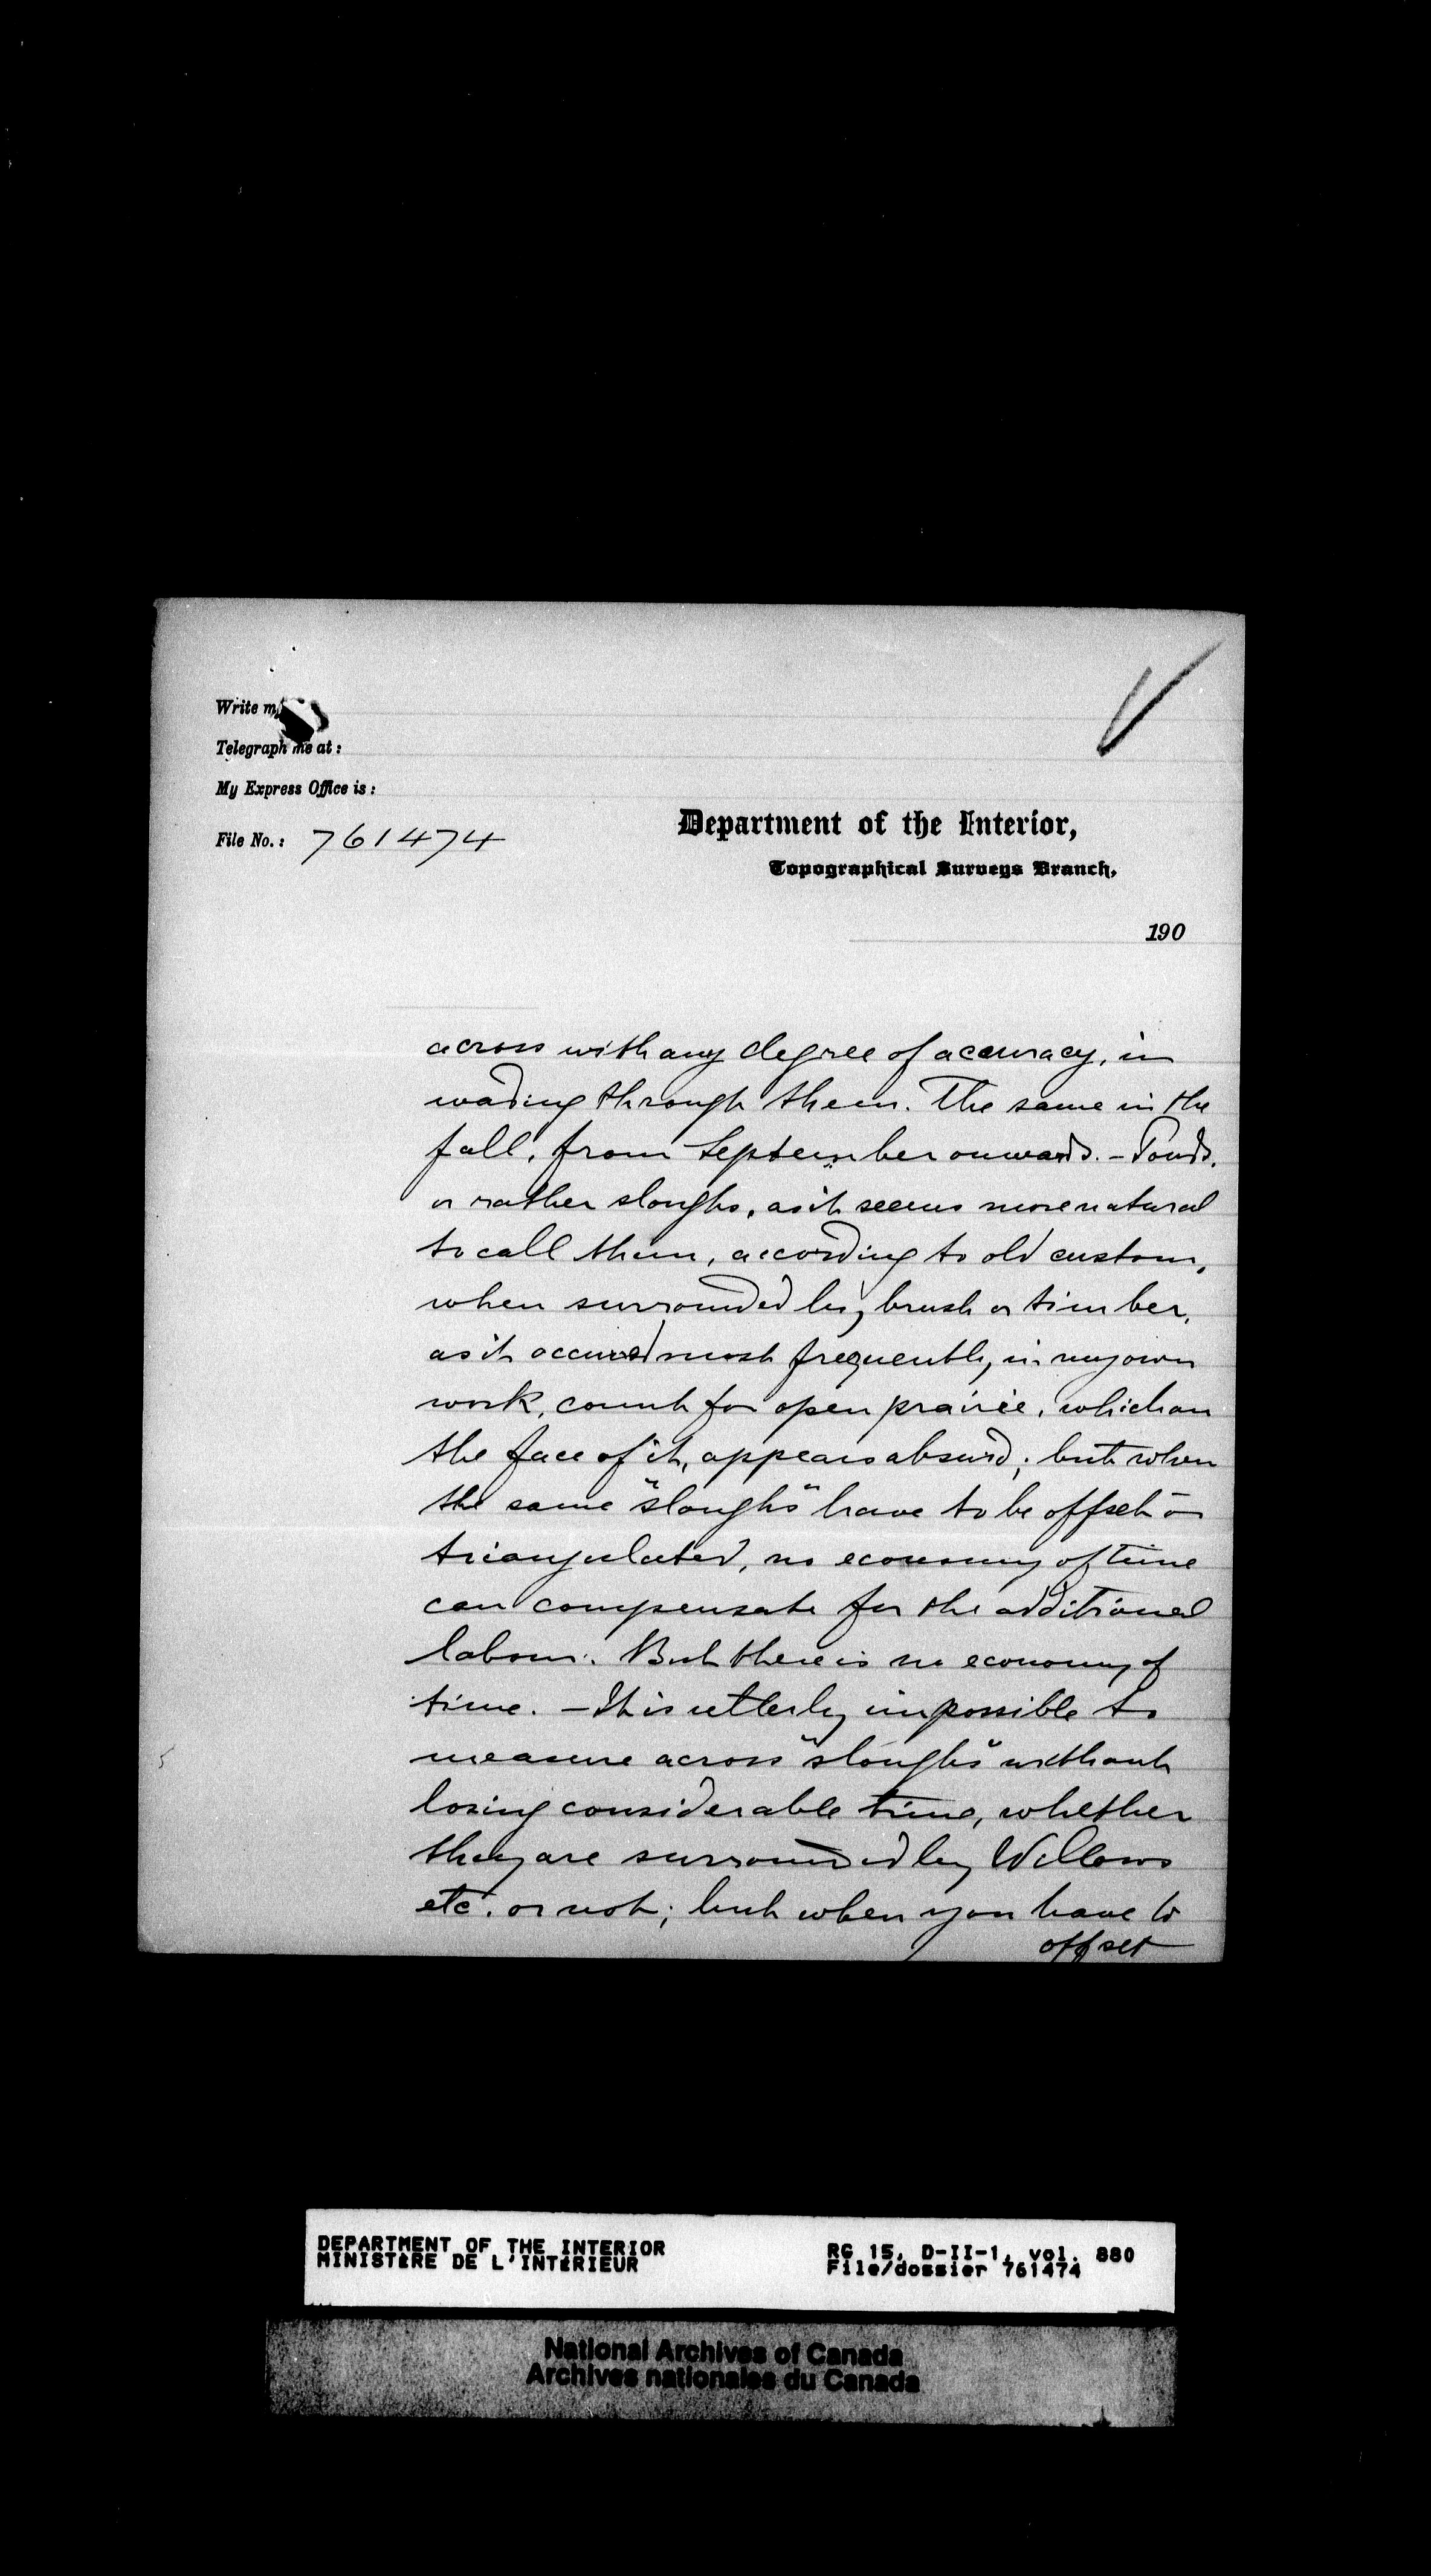 Write m
Telegraph me at :
My Express Office is :
File No. : 761474
Department of the Interior,
Topographical Surveys Branch,
190
across with any degree of accuracy, in
wading through them. The same in the
fall, from September onwards. - Ponds,
or rather sloughs, as it seems more natural
to call them, according to old custom,
when surrounded by brush or timber,
as it occured most frequently, in my own
work, count for open prairie, which on
the face of it, appears absurd; but when
the same "sloughs" have to be offset or
triangulated, no economy of time
can compensate for the additional
labour. But there is no economy of
time. - It is utterly impossible to
measure across "sloughs" without
losing considerable time, whether
they are surrounded by Willows
etc. or not; but when you have to
offset
DEPARTMENT OF THE INTERIOR
MINISTÈRE DE L'INTÉRIEUR
RG 15, D-II-1, vol. 880
File/dossier 761474
National Archives of Canada
Archives nationales du Canada